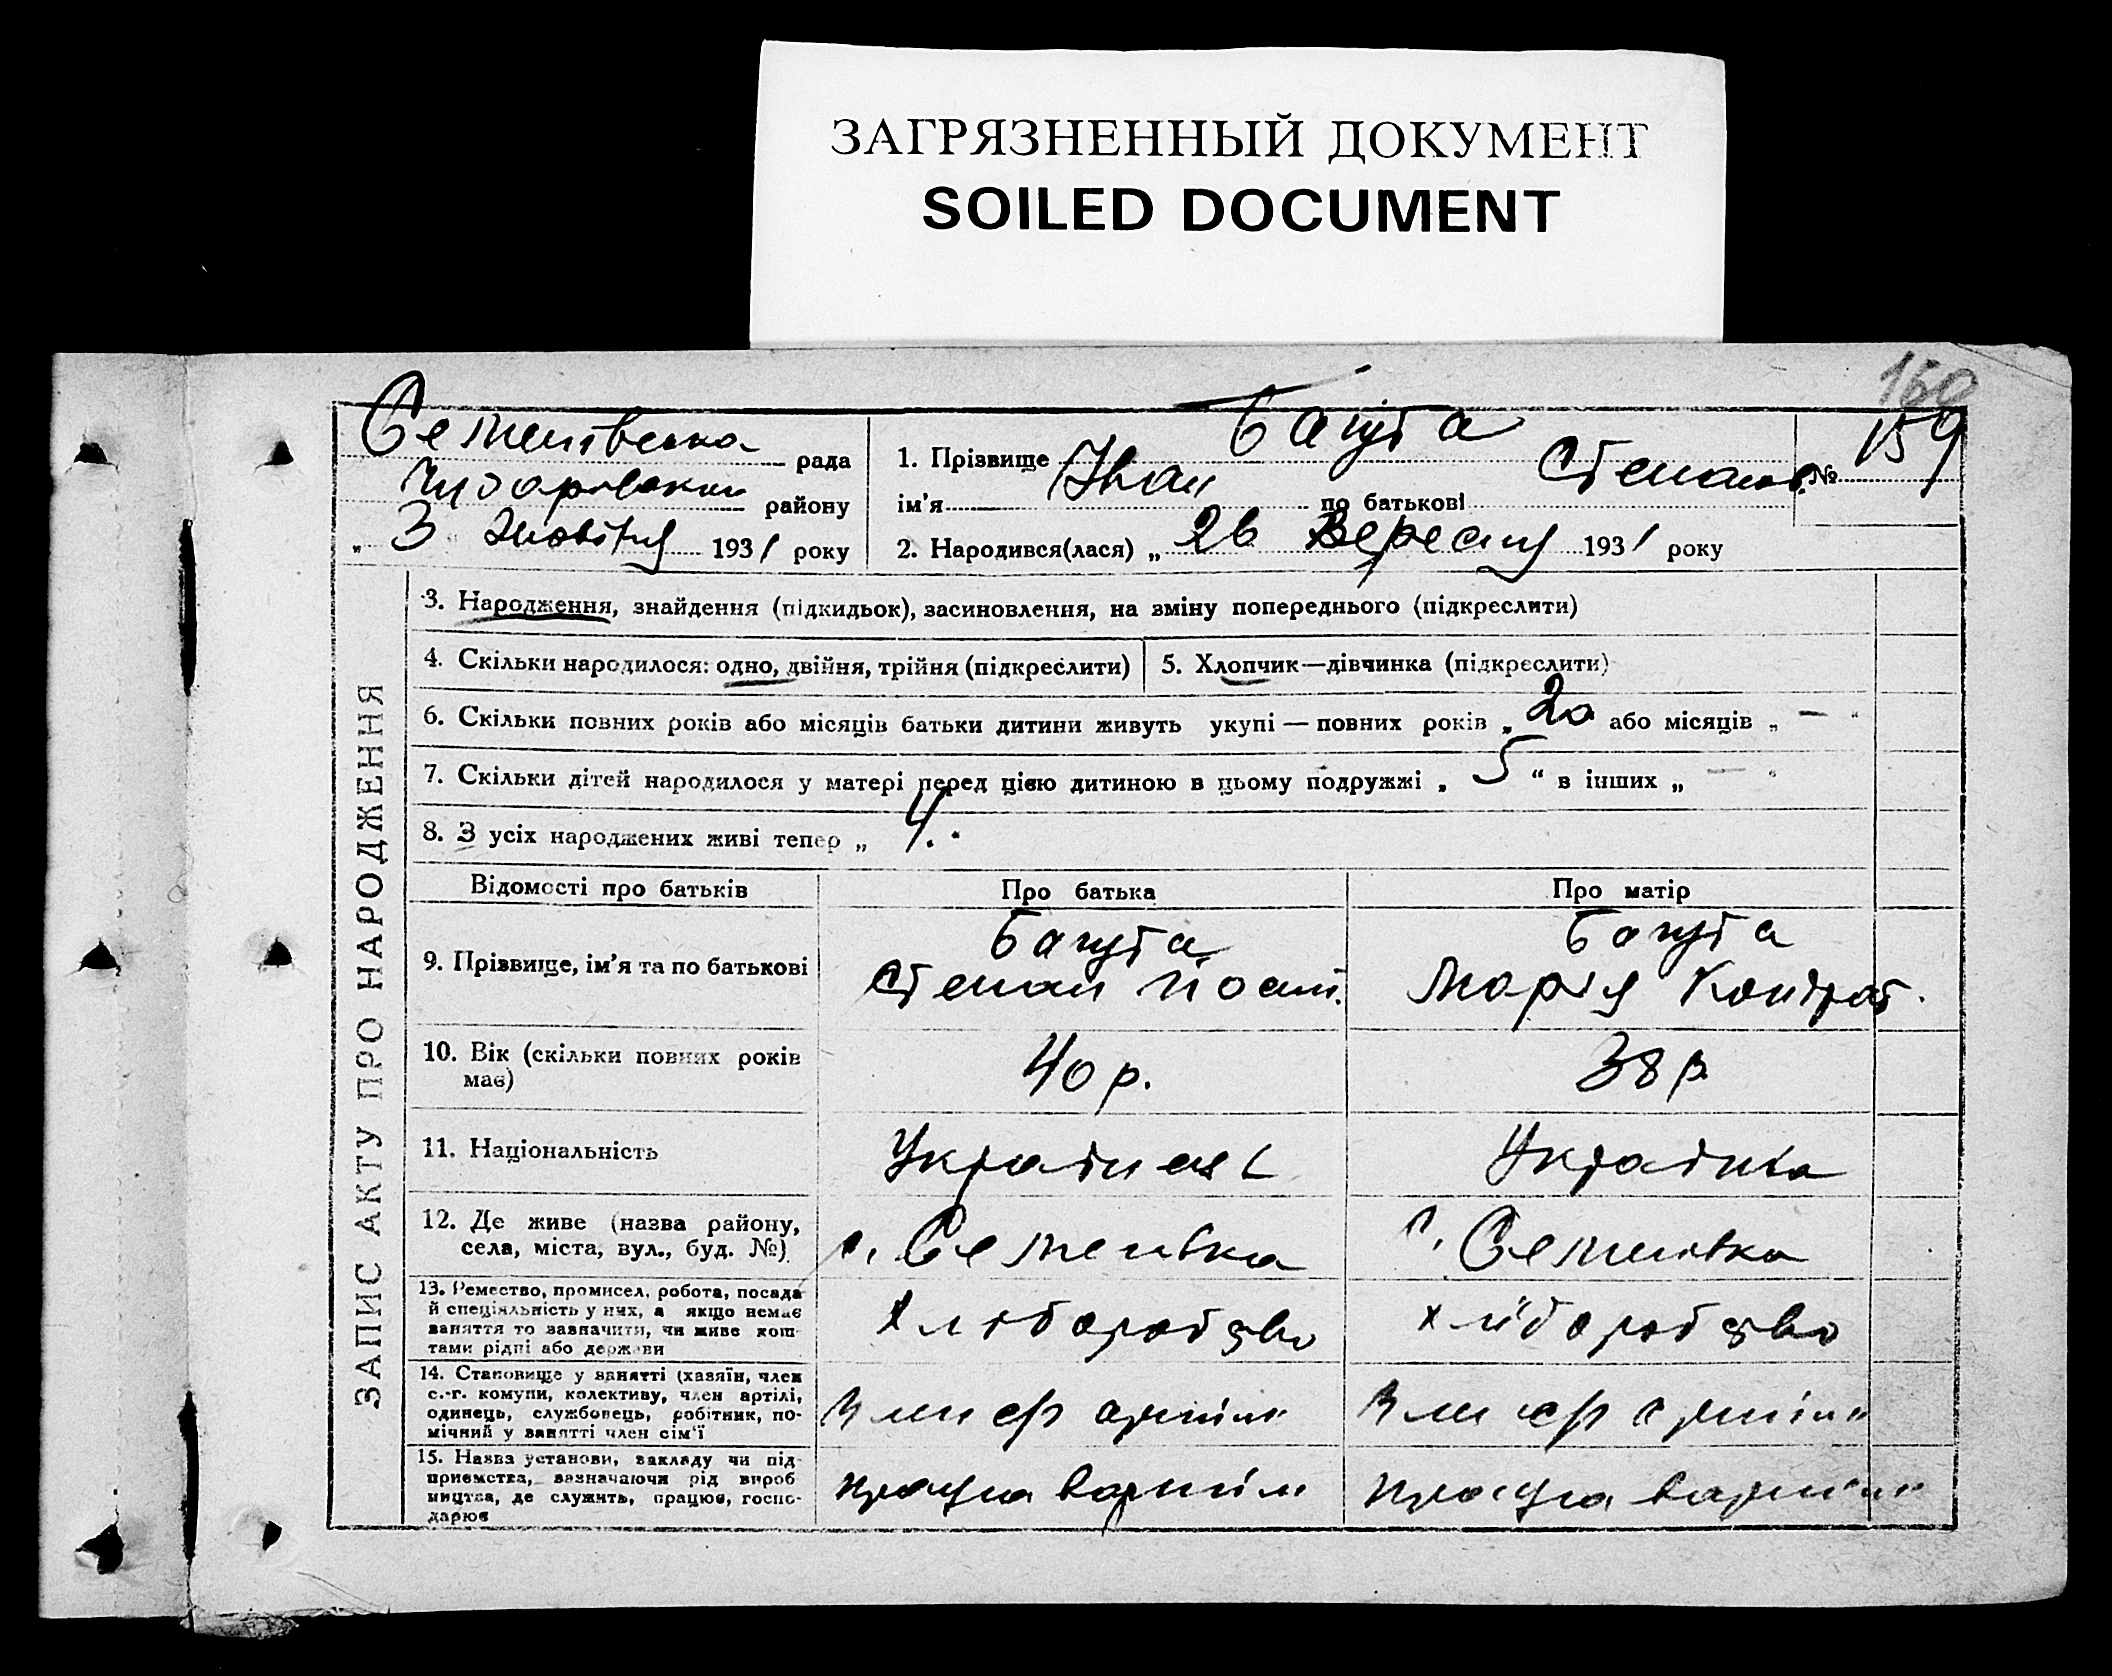 ЗАГРЯЗНЕННЫЙ ДОКУМЕНТ
SOILED DOCUMENT
160
Семенівська рада
району
„ 3 “ Жовтня 1931 року
1. Прізвище Багута
ім’я Іван по батькові Степанов. № 159
2. Народився(лася) „ 26 Вересня 1931 року
ЗАПИС АКТУ ПРО НАРОДЖЕННЯ
3. Народження, знайдення (підкидьок), засиновлення, на зміну попереднього (підкреслити)
4. Скільки народилося: одно, двійня, трійня (підкреслити)
5. Хлопчик—дівчинка (підкреслити)
6. Скільки повних років або місяців батьки дитини живуть укупі — повних років „ 20 або місяців „ — “
7. Скільки дітей народилося у матері перед цією дитиною в цьому подружжі „ 5 “ в інших „ — “
8. З усіх народжених живі тепер „ 4.
Відомості про батьків Про батька Про матір
9. Прізвище, ім’я та по батькові
Багута
Степан Йосип.
Багута
Марія Кондрат.
10. Вік (скільки повних років
має)
40 р.
38 р.
11. Національність
Українець
Українка
12. Де живе (назва району,
села, міста, вул., буд. №)
с. Семенівка
с. Семенівка
13. Ремество, промисел, робота, посада
й спеціяльність у них, а якщо немає
заняття то зазначити, чи живе кош-
тами рідні або держави
хліборобство
хліборобство
14. Становище у занятті (хазяїн, член
с.-г. комуни, колективу, член артілі,
одинець, службовець, робітник, по-
мічний у занятті член сім’ї
Член с/г артіли
Член с/г артіли
15. Назва установи, закладу чи під-
приємства, зазначаючи рід вироб-
ництва, де служить, працює, госпо-
дарює
праця в артіли
праця в артіли